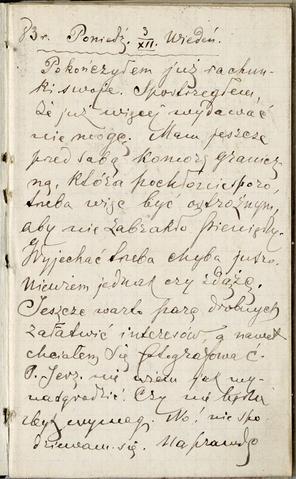 83 r. Poniedz. 3/XII. Wiedeń.
Pokończyłem już rachun-
ki swoje. Spostrzegłem,
że już więcej wydawać
nie mogę. Mam jeszcze
przed sobą komorę granicz
ną, która pochłonie sporo,
trzeba więc być ostrożnym,
aby nie zabrakło pieniędzy.
Wyjechać trzeba chyba jutro.
Niewiem jednak czy zdążę.
Jeszcze warto parę drobnych
załatwić interesów, a nawet
chciałem się fotografować.
P. Jerz. nie wiem jak wy-
nadgrodzić. Czy nie będzie
zbyt wymag. No! nie spo
dziewam się. Naprawdę